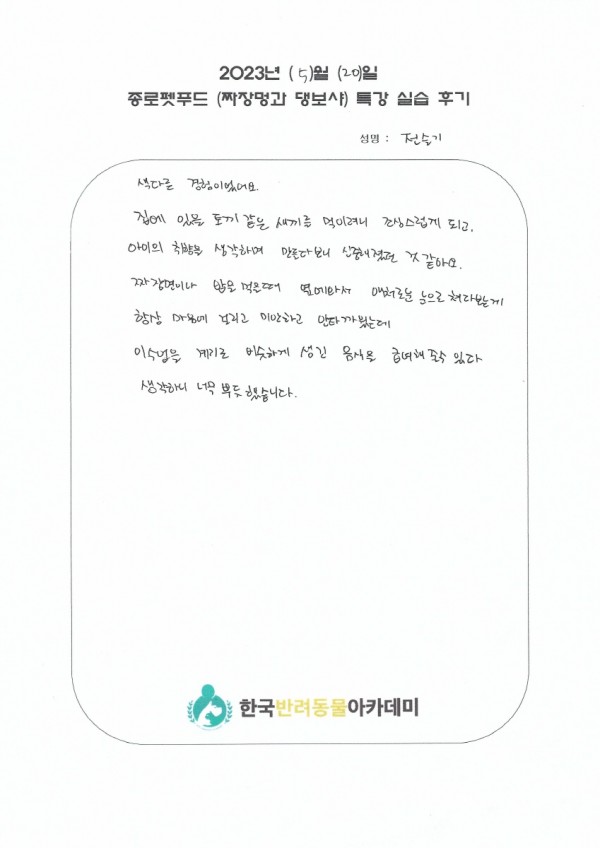 2023년 (5)월 (20)일
종로펫푸드 (짜장멍과 댕보샤) 특강 실습 후기
성명 : 전슬기
색다른 경험이었어요.
집에 있을 토끼 같은 새끼주 먹이려니 조심스럽게 되고,
아이의 취향을 생각하며 만들다보니 신중해졌던 것 같아요.
짜장면이나 밥을 먹을때 옆에와서 애처로운 눈으로 쳐다보는게
항상 마음에 걸리고 미안하고 안타까웠는데
이수업을 계기로 비슷하게 생긴 음식을 급여해 줄수 있다
생각하니 너무 뿌듯했습니다.
한국반려동물아카데미